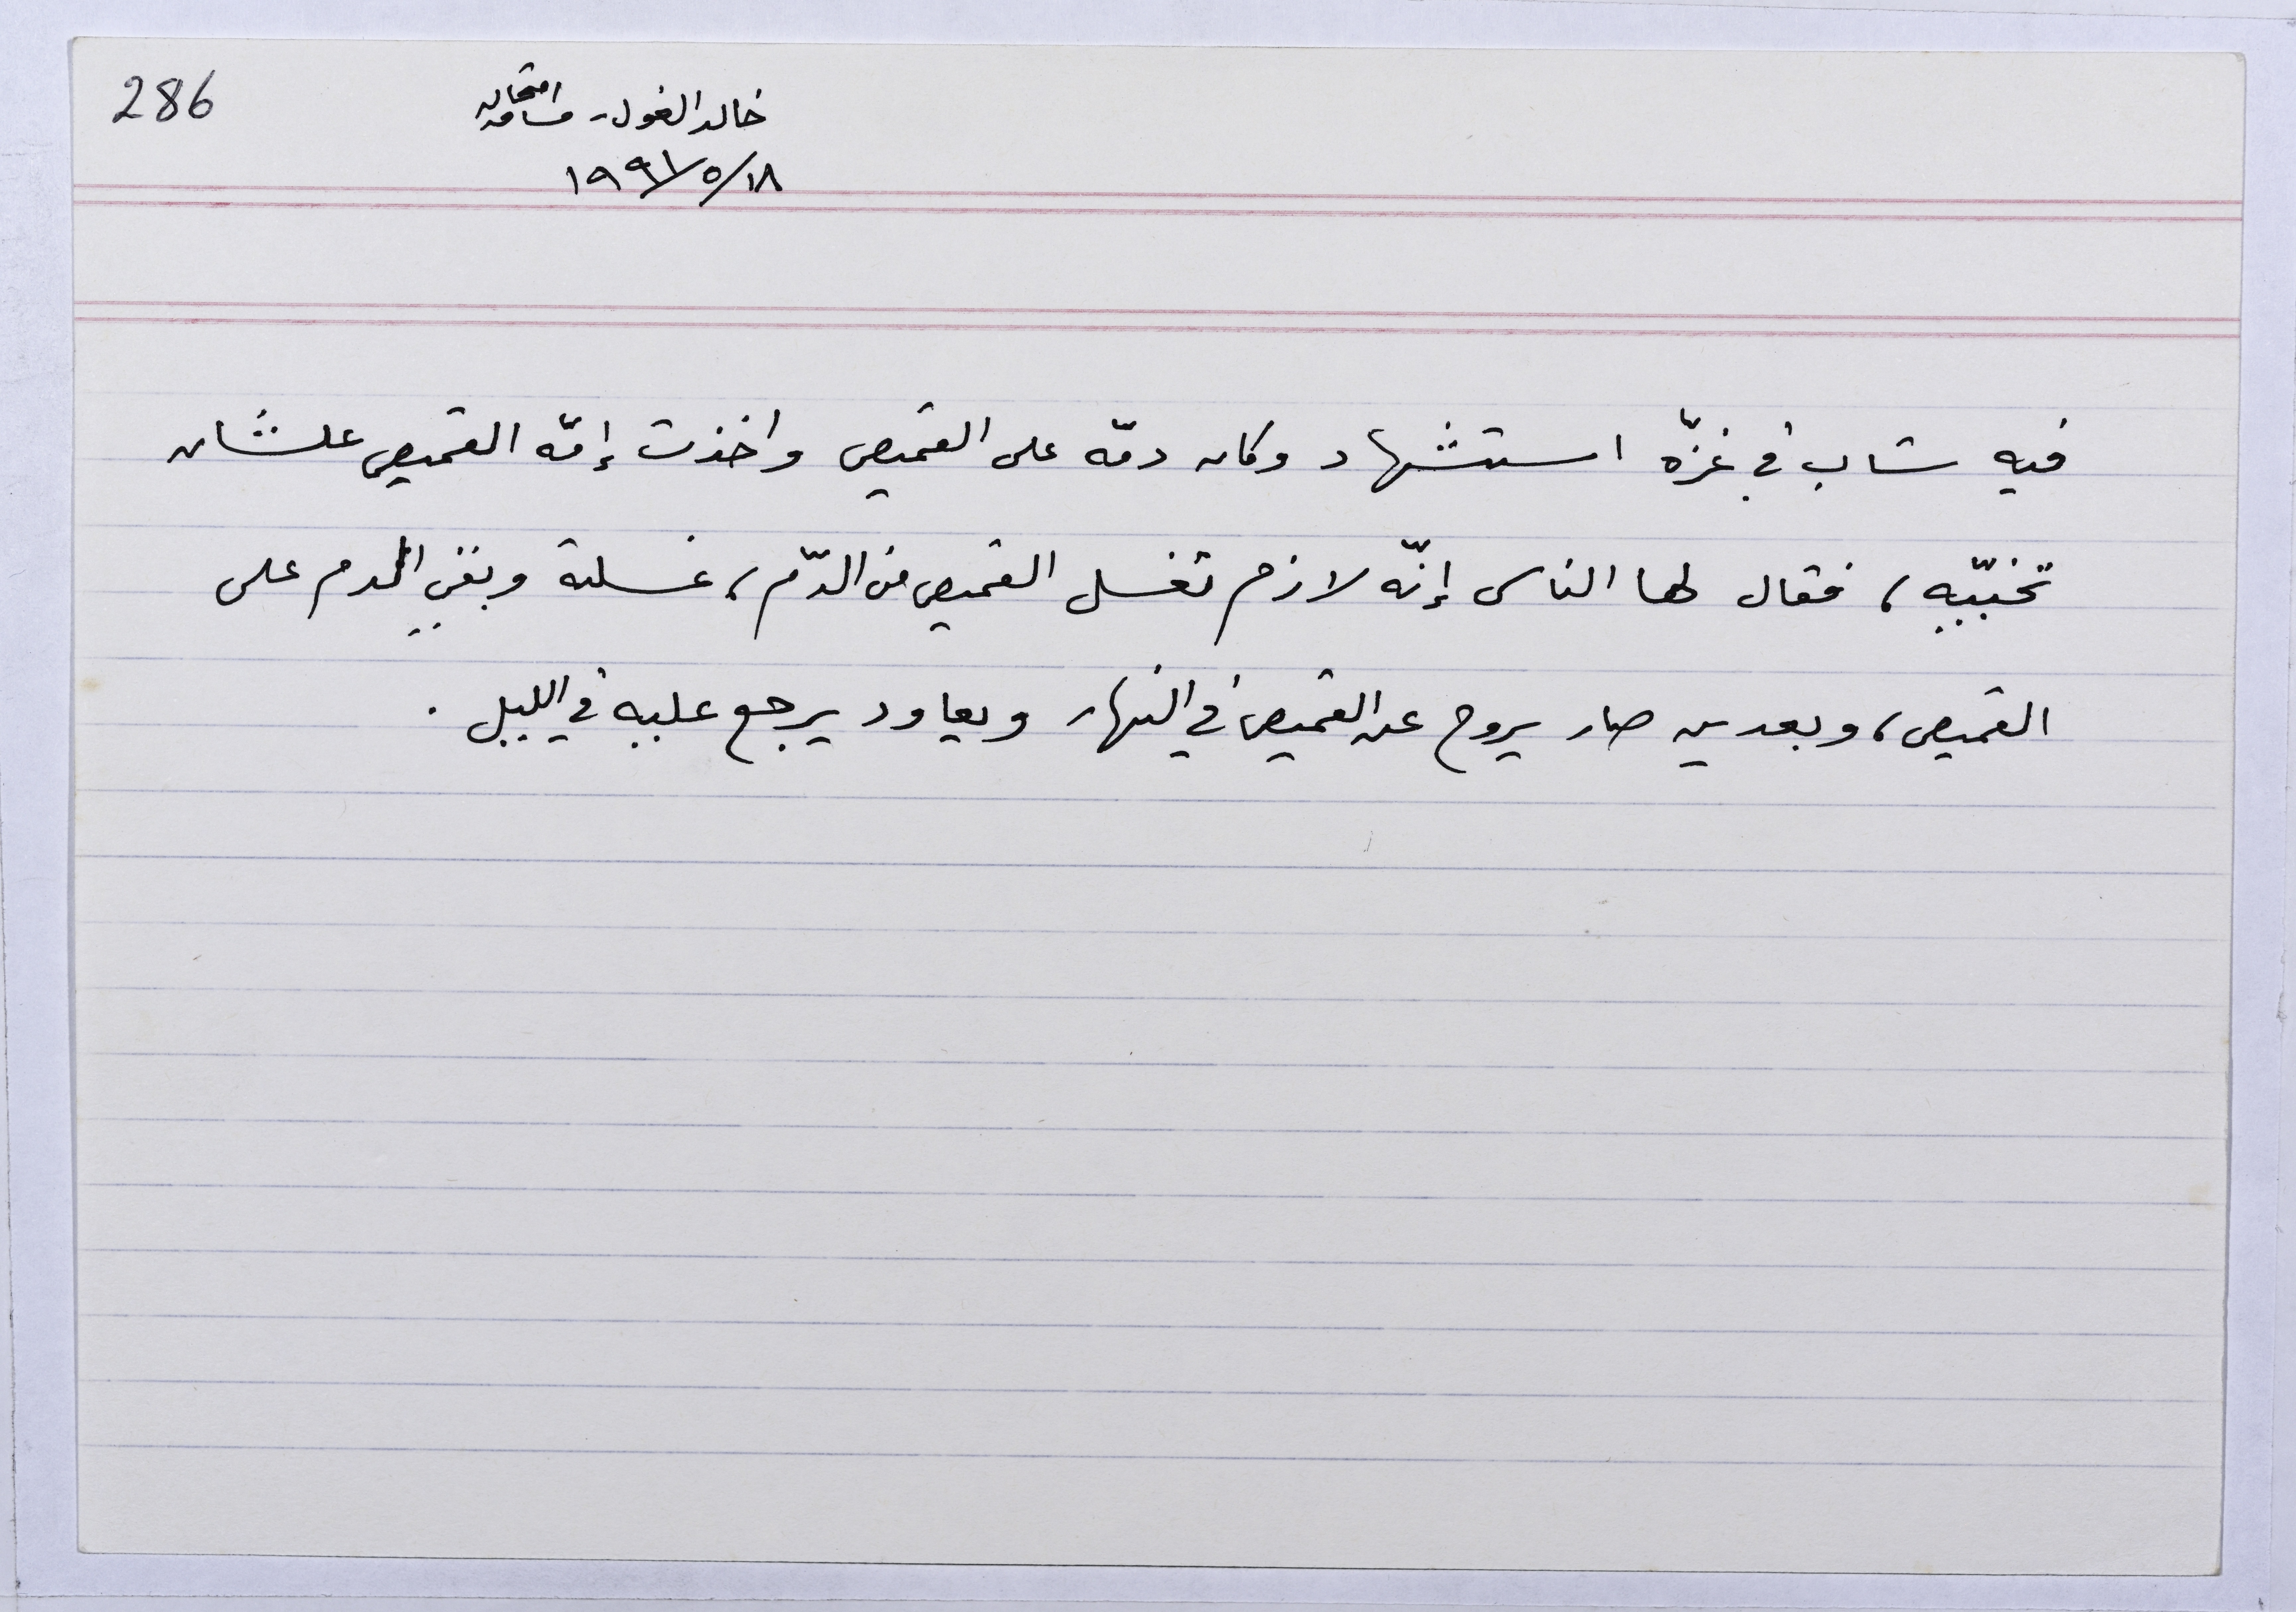 286
خالد الغول - امتحان مساقه
١٨/٥/١٩٩١
فيه شاب في غزّه استشهاد وكان دمّه على القميص واخذت إمّه القميص علشان
تخبّيه، فقال لها الناس إنّه لازم تغسل القميص من الدّم، غسلته وبقي الدم على
القميص، وبعدين صار يروح عن القميص في النهار ويعاود يرجع عليه في الليل.